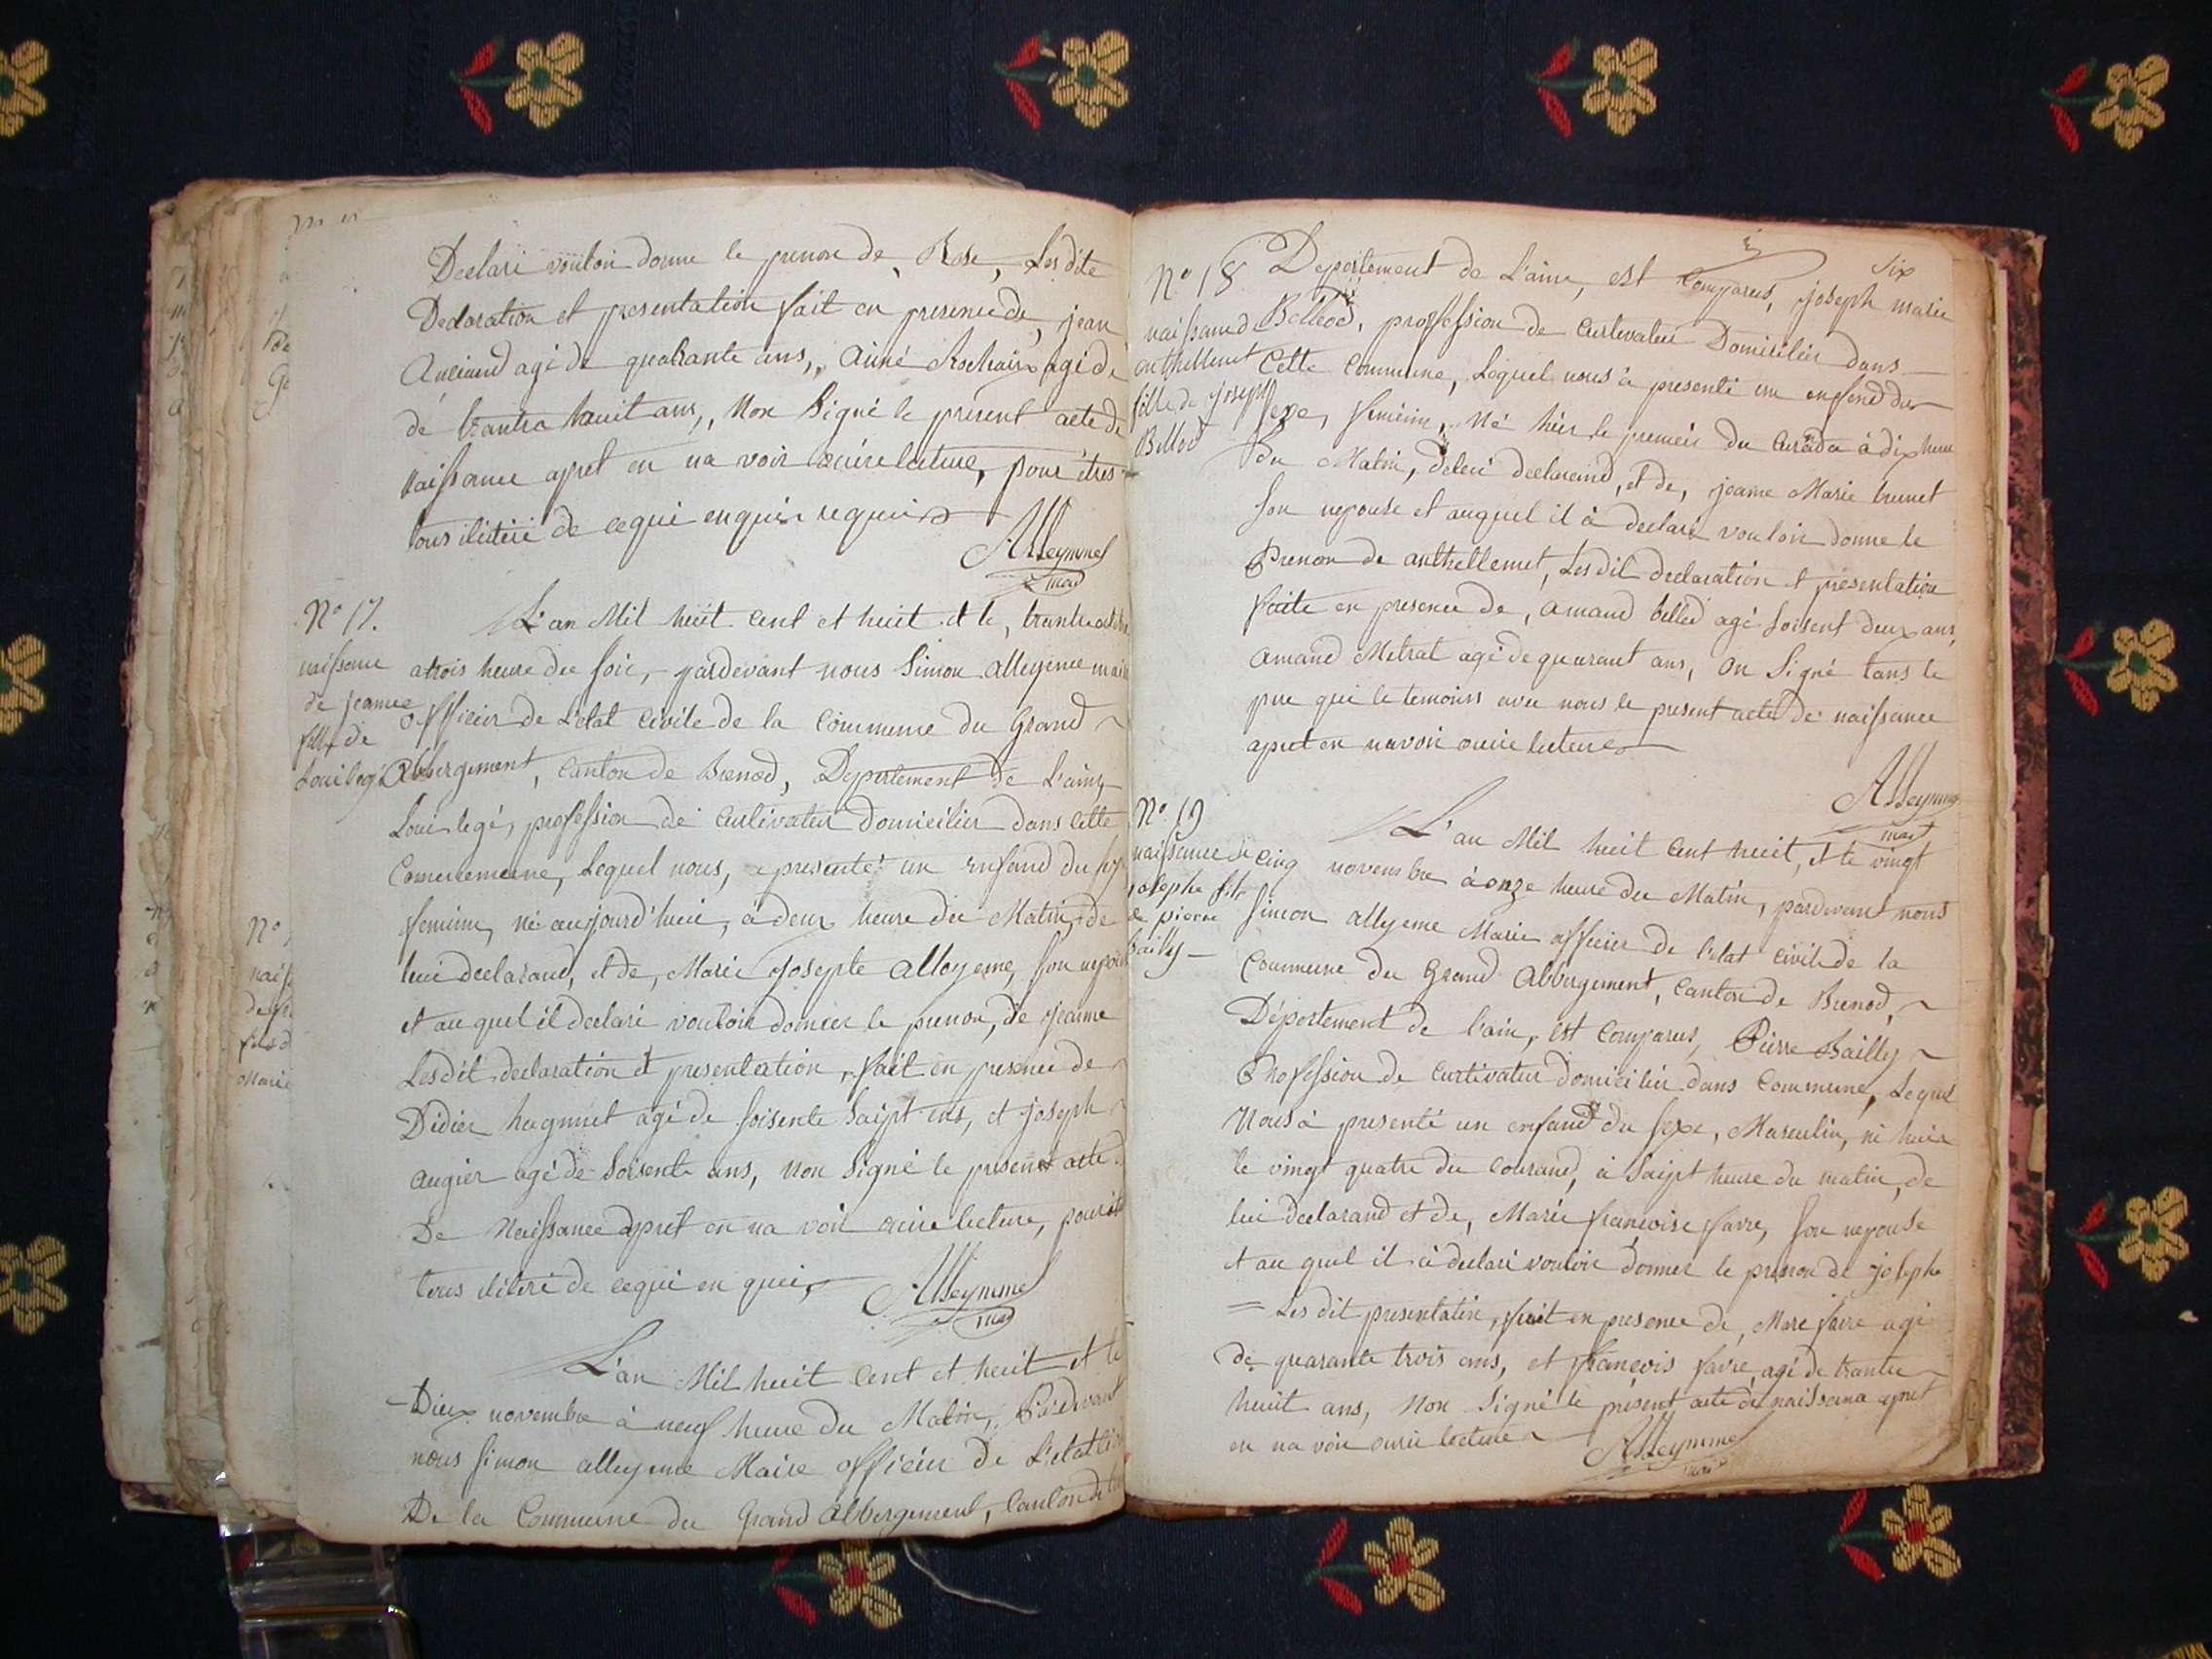 Declaré vouloir donne le prenon de, Rose, Les dite
Declaration et presentation fait en presence de, jean
agé de quatrante ans,, aimé Rochaix agé dé
dé trante huit ans,, Non Signé le present acte de
naissance apret en na voir ouire lecture, pour êtres
tous de ce qui en qui requis
Alleymme
mair
No 17.
naissance
de jeanne
fille de
Loui legé
L'an Mil huit cent et huit et le,
a trois heure du soir, pardevant nous Simon alleyeme maire
officier de L'etat civile de la commune du Grand
Abbergement, canton de Brenod, Departement de L'ain,
Loui legé, profession de cultivateur domicilier dans cette
Commune, Lequel nous, a presenté un enfand du sexe
feminin, né aujourd'hui, à deux heure du Matin, de
lui declarand, et de, Marie josepte alleyeme, son
et au quel il declaré vouloir donner le prenon, de jeanne
Les dit declaration et presentation, fait en presence de
Didier hugnuet agé de soisente saipt ans, et joseph
augier agé de soisente ans, non Signé le present acte
De Naissance apret en na voir ouire lecture, pour
tous de ce qui en quis
Alleymme
mair
L'an Mil huit cent et huit et le
Dieux novembre à neuf heure du Matin, Pardevant
nous Simon alleyeme Maire officier de L'etat
De la Commune du Grand abbergement, canton de
six
No 18
naissance d
anthellmet
fille de joseph
Billod
Departement de L'ain, est comparus, joseph marie
Belleod, profession de cultivateur Domicilier dans
Cette Commune, Lequel nous à presenté un enfand du
sexe, feminin, né hier le premier du à dix heure
Du Matin, declarand, et de, jeanne Marie brunet
son nepouse et auquel il à declaré vouloir donne le
Prenon de anthellemet, Les dit declaration et presentation
faite en presence de, amand belled agé soisent deux ans,
amand Metrat agé de quarant ans, on Signé tans le
pere que le temoins avec nous le present acte de naissance
apret en navoir ouire lecture
Alleymme
mair
No. 19
naissance de
josephe fils
de pierre
bailly
L'an Mil huit cent huit, et le vingt
cinq novembre à onze heure du Matin, pardevant nous
Simon alleyeme Marie officier de l'etat civil de la
Commune du Grand Abbergement, Canton de Brenod,
Département de l'ain, est comparus, Pierre Bailly
Profession de curtivateur domicilier dans Commune, Lequel
Nous à presenté un enfand du sexe, Masculin, né hier
le vingt quatre du courand, à saipt heure du matin, de
lui declarand et de, Marie francoise favre, son nepouse
et au quel il à declaré vouloir donner le prenon de josephe
= Les dit presentatin, fait en presence de, Marc favre agé
de quarante trois ans, et françois favre, agé de trante
huit ans, Non Signé le present acte de naissance apret
en na voir ouire lecture
Alleymme
mair